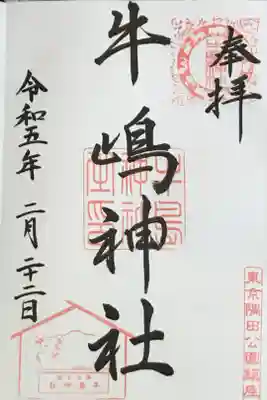 奉拝
牛嶋神社
令和五年 二月二十二日
東京隅田公園鎮座